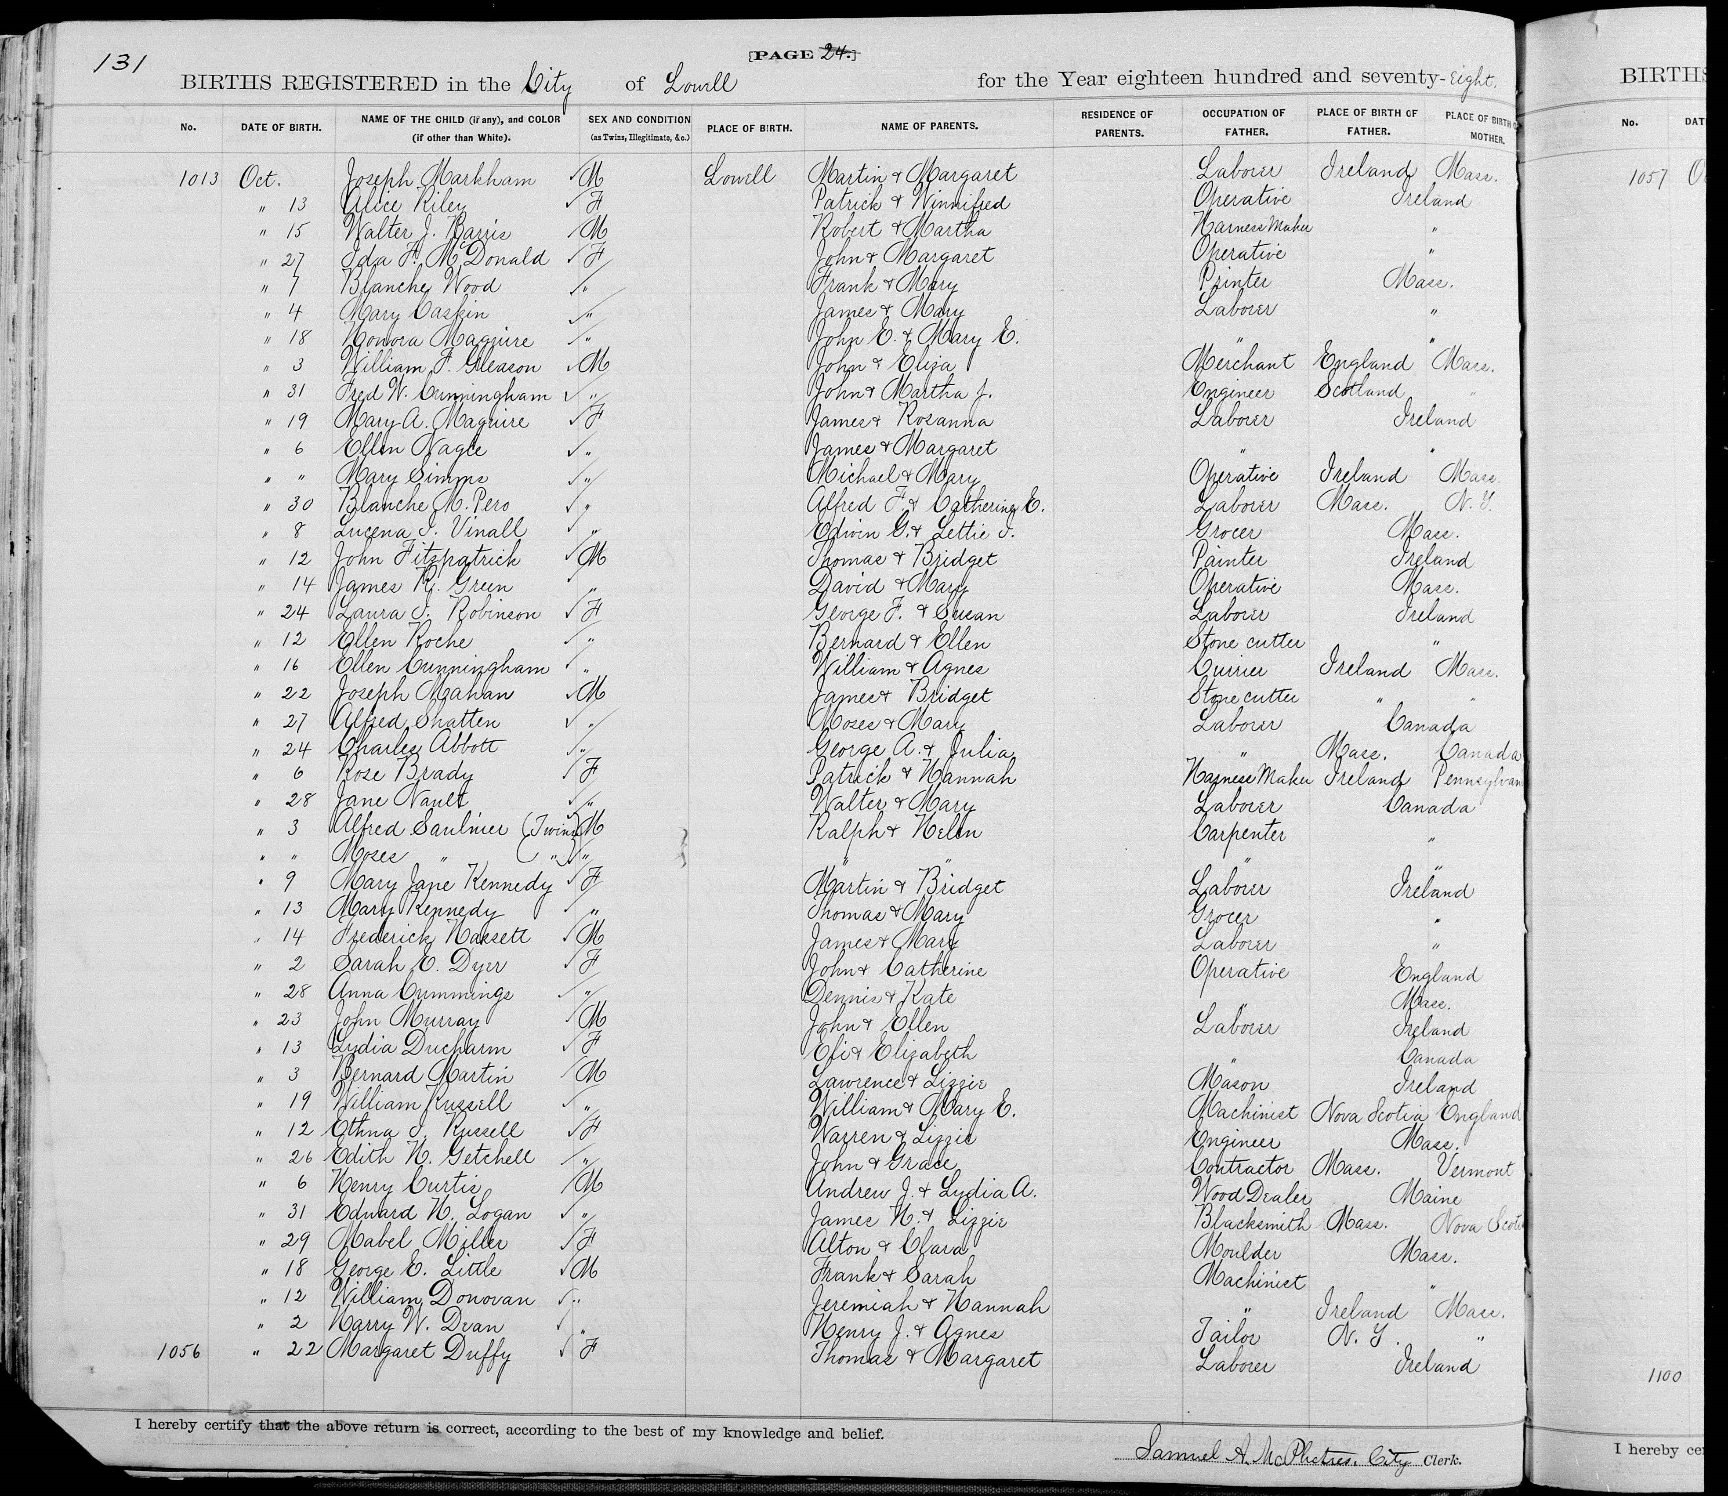 131
[PAGE 24.]
BIRTHS REGISTERED in the City of Lowell for the Year eighteen hundred and seventy-Eight.
No. DATE OF BIRTH. NAME OF THE CHILD (if any), and COLOR (if other than White). SEX AND CONDITION (as Twins, Illegitimate, &c.) PLACE OF BIRTH. NAME OF PARENTS. RESIDENCE OF PARENTS. OCCUPATION OF FATHER. PLACE OF BIRTH OF FATHER. PLACE OF BIRTH OF MOTHER.
1013 Oct. Joseph Markham ✓ M Lowell Martin & Margaret Laborer Ireland Mass.
" 13 Alice Riley ✓ F Patrick & Winnifred Operative Ireland
" 15 Walter J. Harris ✓ M Robert & Martha Harness Maker "
" 27 Ida F. McDonald ✓ F John & Margaret Operative "
" 7 Blanche Wood ✓ " Frank & Mary Printer Mass.
" 4 Mary Caskin ✓ " James & Mary Laborer "
" 18 Honora Maguire ✓ " John E. & Mary E. " "
" 3 William F. Gleason ✓ M John & Eliza Merchant England Mass.
" 31 Fred W. Cunningham ✓ " John & Martha J. Engineer Scotland "
" 19 Mary A. Maguire ✓ F James & Rosanna Laborer Ireland
" 6 Ellen Nagle ✓ " James & Margaret " "
" " Mary Simms ✓ " Michael & Mary Operative Ireland Mass.
" 30 Blanche M. Pero ✓ " Alfred F & Catherine E. Laborer Mass. N. Y.
" 8 Lucena I. Vinall ✓ " Edwin G. & Lettie I. Grocer Mass.
" 12 John Fitzpatrick ✓ M Thomas & Bridget Painter Ireland
" 14 James R. Green ✓ " David & Mary Operative Mass.
" 24 Laura I. Robinson ✓ F George F. & Susan Laborer Ireland
" 12 Ellen Roche ✓ " Bernard & Ellen Stone cutter "
" 16 Ellen Cunningham ✓ " William & Agnes Currier Ireland Mass.
" 22 Joseph Mahan ✓ M James & Bridget Stone cutter " "
" 27 Alfred Shatten ✓ " Moses & Mary Laborer Canada
" 24 Charles Abbott ✓ " George A. & Julia " Mass. Canada
" 6 Rose Brady ✓ F Patrick & Hannah Harness Maker Ireland Pennsylvan
" 28 Jane Nault ✓ " Walter & Mary Laborer Canada
" 3 Alfred Saulnier (Twins) M Ralph & Helen Carpenter "
" " Moses " ( " ) ✓ " " " " "
" 9 Mary Jane Kennedy ✓ F Martin & Bridget Laborer Ireland
" 13 Mary Kennedy ✓ " Thomas & Mary Grocer "
" 14 Frederick Hassett ✓ M James & Mary Laborer "
" 2 Sarah E. Dyer ✓ F John & Catherine Operative England
" 28 Anna Cummings ✓ " Dennis & Kate " Mass.
" 23 John Murray ✓ M John & Ellen Laborer Ireland
" 13 Lydia Ducharm ✓ F Eli & Elizabeth " Canada
" 3 Bernard Martin ✓ M Lawrence & Lizzie Mason Ireland
" 19 William Russell ✓ " William & Mary E. Machinist Nova Scotia England
" 12 Ethna I. Russell ✓ F Warren & Lizzie Engineer Mass.
" 26 Edith H. Getchell ✓ " John & Grace Contractor Mass. Vermont
" 6 Henry Curtis ✓ M Andrew J. & Lydia A. Wood Dealer Maine
" 31 Edward H. Logan ✓ " James H. & Lizzie Blacksmith Mass. Nova Scoti
" 29 Mabel Miller ✓ F Alton & Clara Moulder Mass.
" 18 George E. Little ✓ M Frank & Sarah Machinist "
" 12 William Donovan ✓ " Jeremiah & Hannah " Ireland Mass.
" 2 Harry W. Dean ✓ " Henry J. & Agnes Tailor N. Y. "
1056 " 22 Margaret Duffy ✓ F Thomas & Margaret Laborer Ireland
I hereby certify that the above return is correct, according to the best of my knowledge and belief.
Samuel A. McPhetres. City Clerk.
BIRTHS
No. DAT
1057 O
1100
I hereby ce